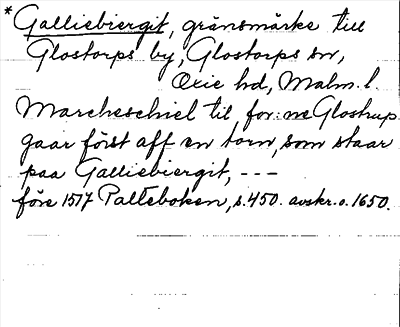 *Galliebiergit, gränsmärke till
Glostorps by, Glostorps sn,
Oxie hd, Malm. l.
Marcheschiel til for:ne Glostrup
gaar först aff en torn, som staar
paa Galliebiergit, ---
före 1517 Palteboken, s. 450. avskr. o. 1650.